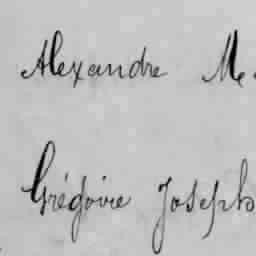 Alexandre Me
Grégoire Joseph